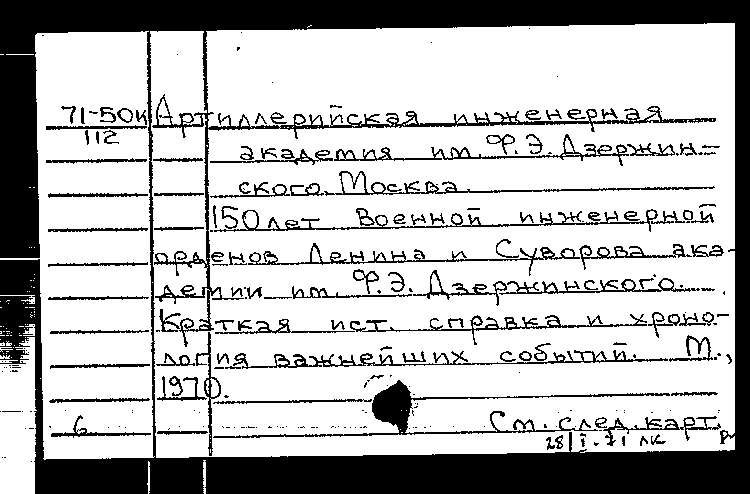 71-50к Артиллерийская инженерная
112
академия им. Ф.Э. Дзержин-
ского. Москва.
150 лет Военной инженерной
орденов Ленина и Суворова ака-
демии им. Ф.Э. Дзержинского.
Краткая ист. справка и хроно-
логия важнейших событий. М.,
1970.
6 См. след. карт.
28/I-71 лк